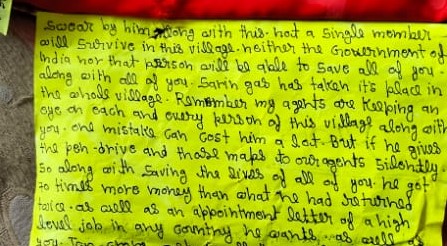 swear by him along with this. not a single member
will survive in this village. neither the Government of
India nor that person will be able to save all of you
along with all of you. Sarin gas has taken it's place in
the whole village. Remember my agents are keeping an
eye on each and every person of this village along with
you. one mistake can cost him a lot. But if he gives
the pen-drive and those maps to our agents silently
so along with saving the lives of all of you. he got
70 times more money than what he had returned
twice. as well as an appointment letter of a high
level job in any country he wants. as well as
you.